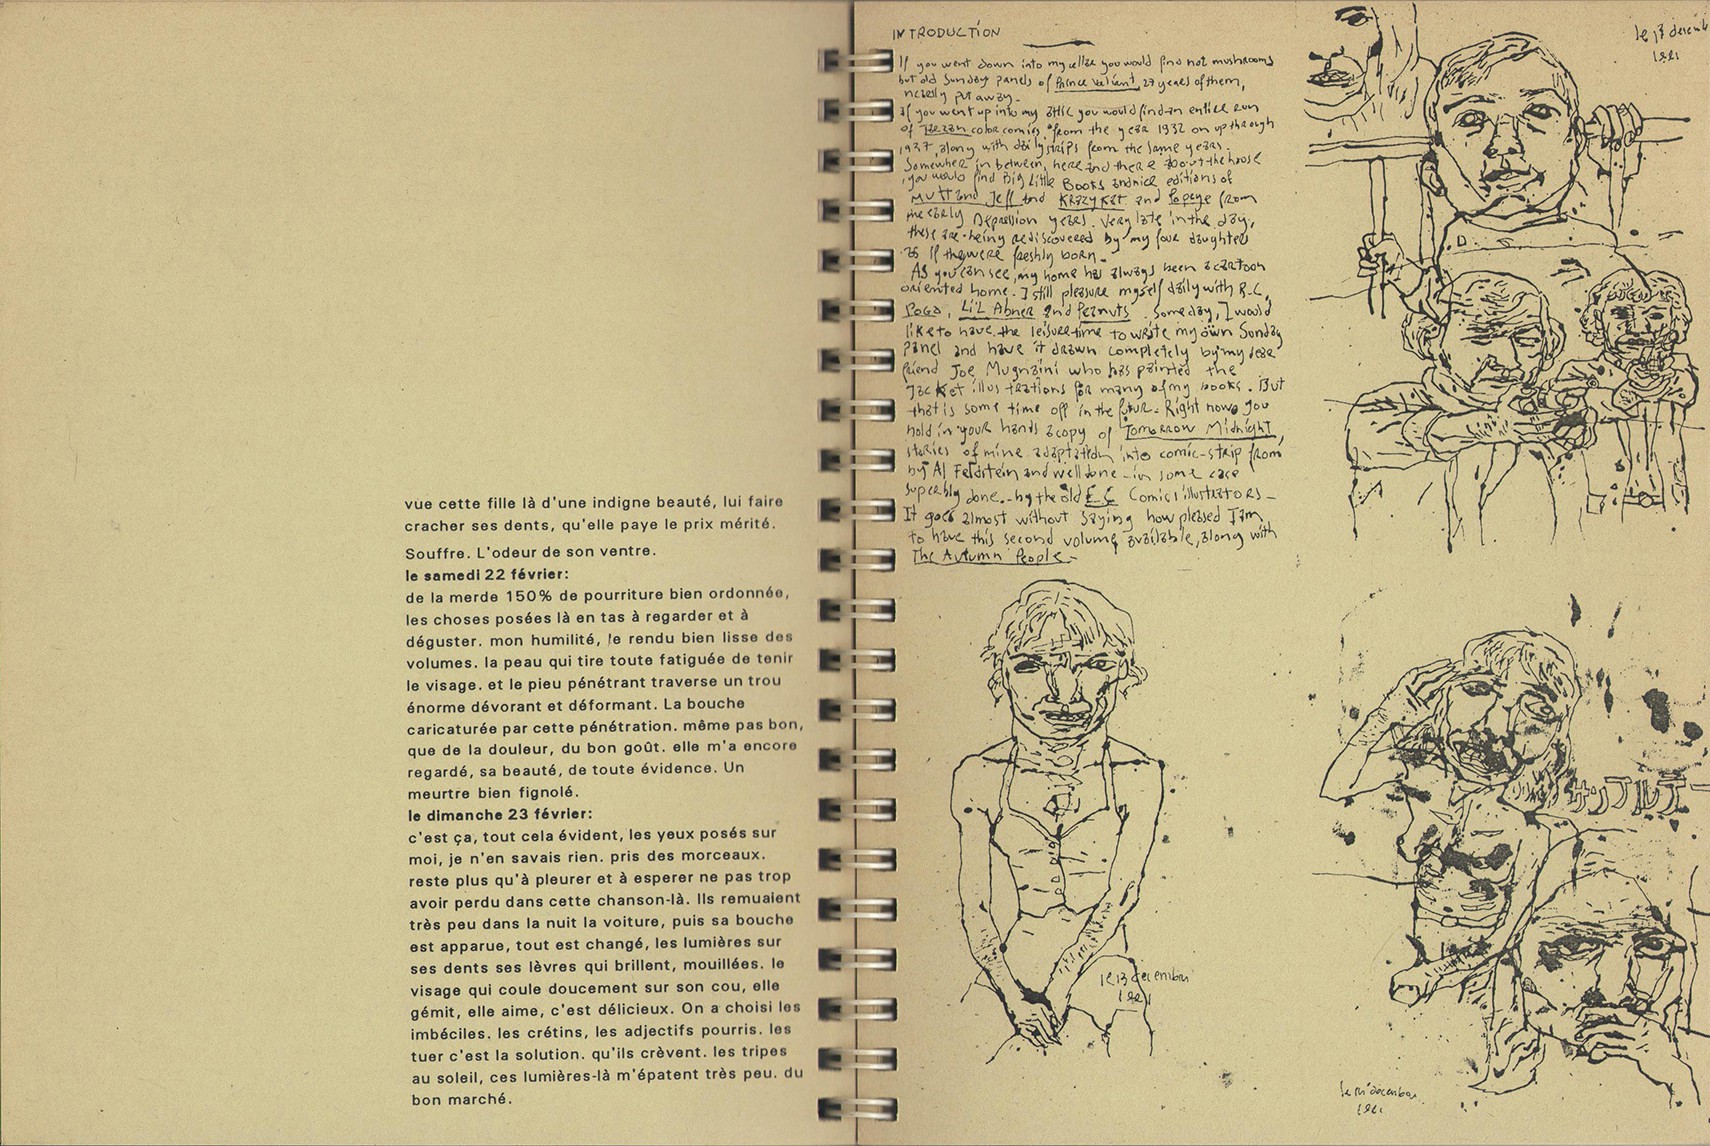 vue cette fille là d'une indigne beauté, lui faire
cracher ses dents, qu'elle paye le prix mérité.
Souffre. L'odeur de son ventre.
le samedi 22 février:
de la merde 150% de pourriture bien ordonnée,
les choses posées là en tas à regarder et à
déguster. mon humilité, le rendu bien lisse des
volumes. la peau qui tire toute fatiguée de tenir
le visage. et le pieu pénétrant traverse un trou
énorme dévorant et déformant. La bouche
caricaturée par cette pénétration. même pas bon,
que de la douleur, du bon goût. elle m'a encore
regardé, sa beauté, de toute évidence. Un
meurtre bien fignolé.
le dimanche 23 février:
c'est ça, tout cela évident, les yeux posés sur
moi, je n'en savais rien. pris des morceaux.
reste plus qu'à pleurer et à esperer ne pas trop
avoir perdu dans cette chanson-là. Ils remuaient
très peu dans la nuit la voiture, puis sa bouche
est apparue, tout est changé, les lumières sur
ses dents ses lèvres qui brillent, mouillées. le
visage qui coule doucement sur son cou, elle
gémit, elle aime, c'est délicieux. On a choisi les
imbéciles. les crétins, les adjectifs pourris. les
tuer c'est la solution. qu'ils crèvent. les tripes
au soleil, ces lumières-là m'épatent très peu. du
bon marché.
INTRODUCTION
If you went down into my cellar you would find not mushrooms
but old Sunday panels of Prince Valiant, 27 years of them,
neatly put away.
If you went up into my attic you would find an entire run
of Tarzan color comics from the year 1932 on up through
1937, along with daily strips from the same years.
Somewher in between, here and there about the house
you would find Big Little Books and nice editions of
Mutt and Jeff and Krazy Kat and Popeye from
the early Depression years. Very late in the day,
these are being rediscovered by my four daughters
as if they were freshly born.
As you can see, my home has always been a cartoon
oriented home. I still pleasure myself daily with B.C,
Pogo, Li'l Abner and Peanuts. Someday, I would
like to have the leisure time to write my own Sunday
panel and have it drawn completely by my dear
friend Joe Mugnaini who has painted the
jacket illustrations for many of my books. But
that is some time off in the futur. Right now you
hold in your hands a copy of Tomorrow Midnight,
stories of mine adaptation into comic-strip from
by Al Feldstein and well done - in some case
superbly done - by the old E.C Comics illustrators -
It goes almost without saying how pleased I am
to have this second volume available, along with
The Autumn People -
le 13 decembre
1991
le 13 decembre
1991
サンフルテー
le decembre
1991